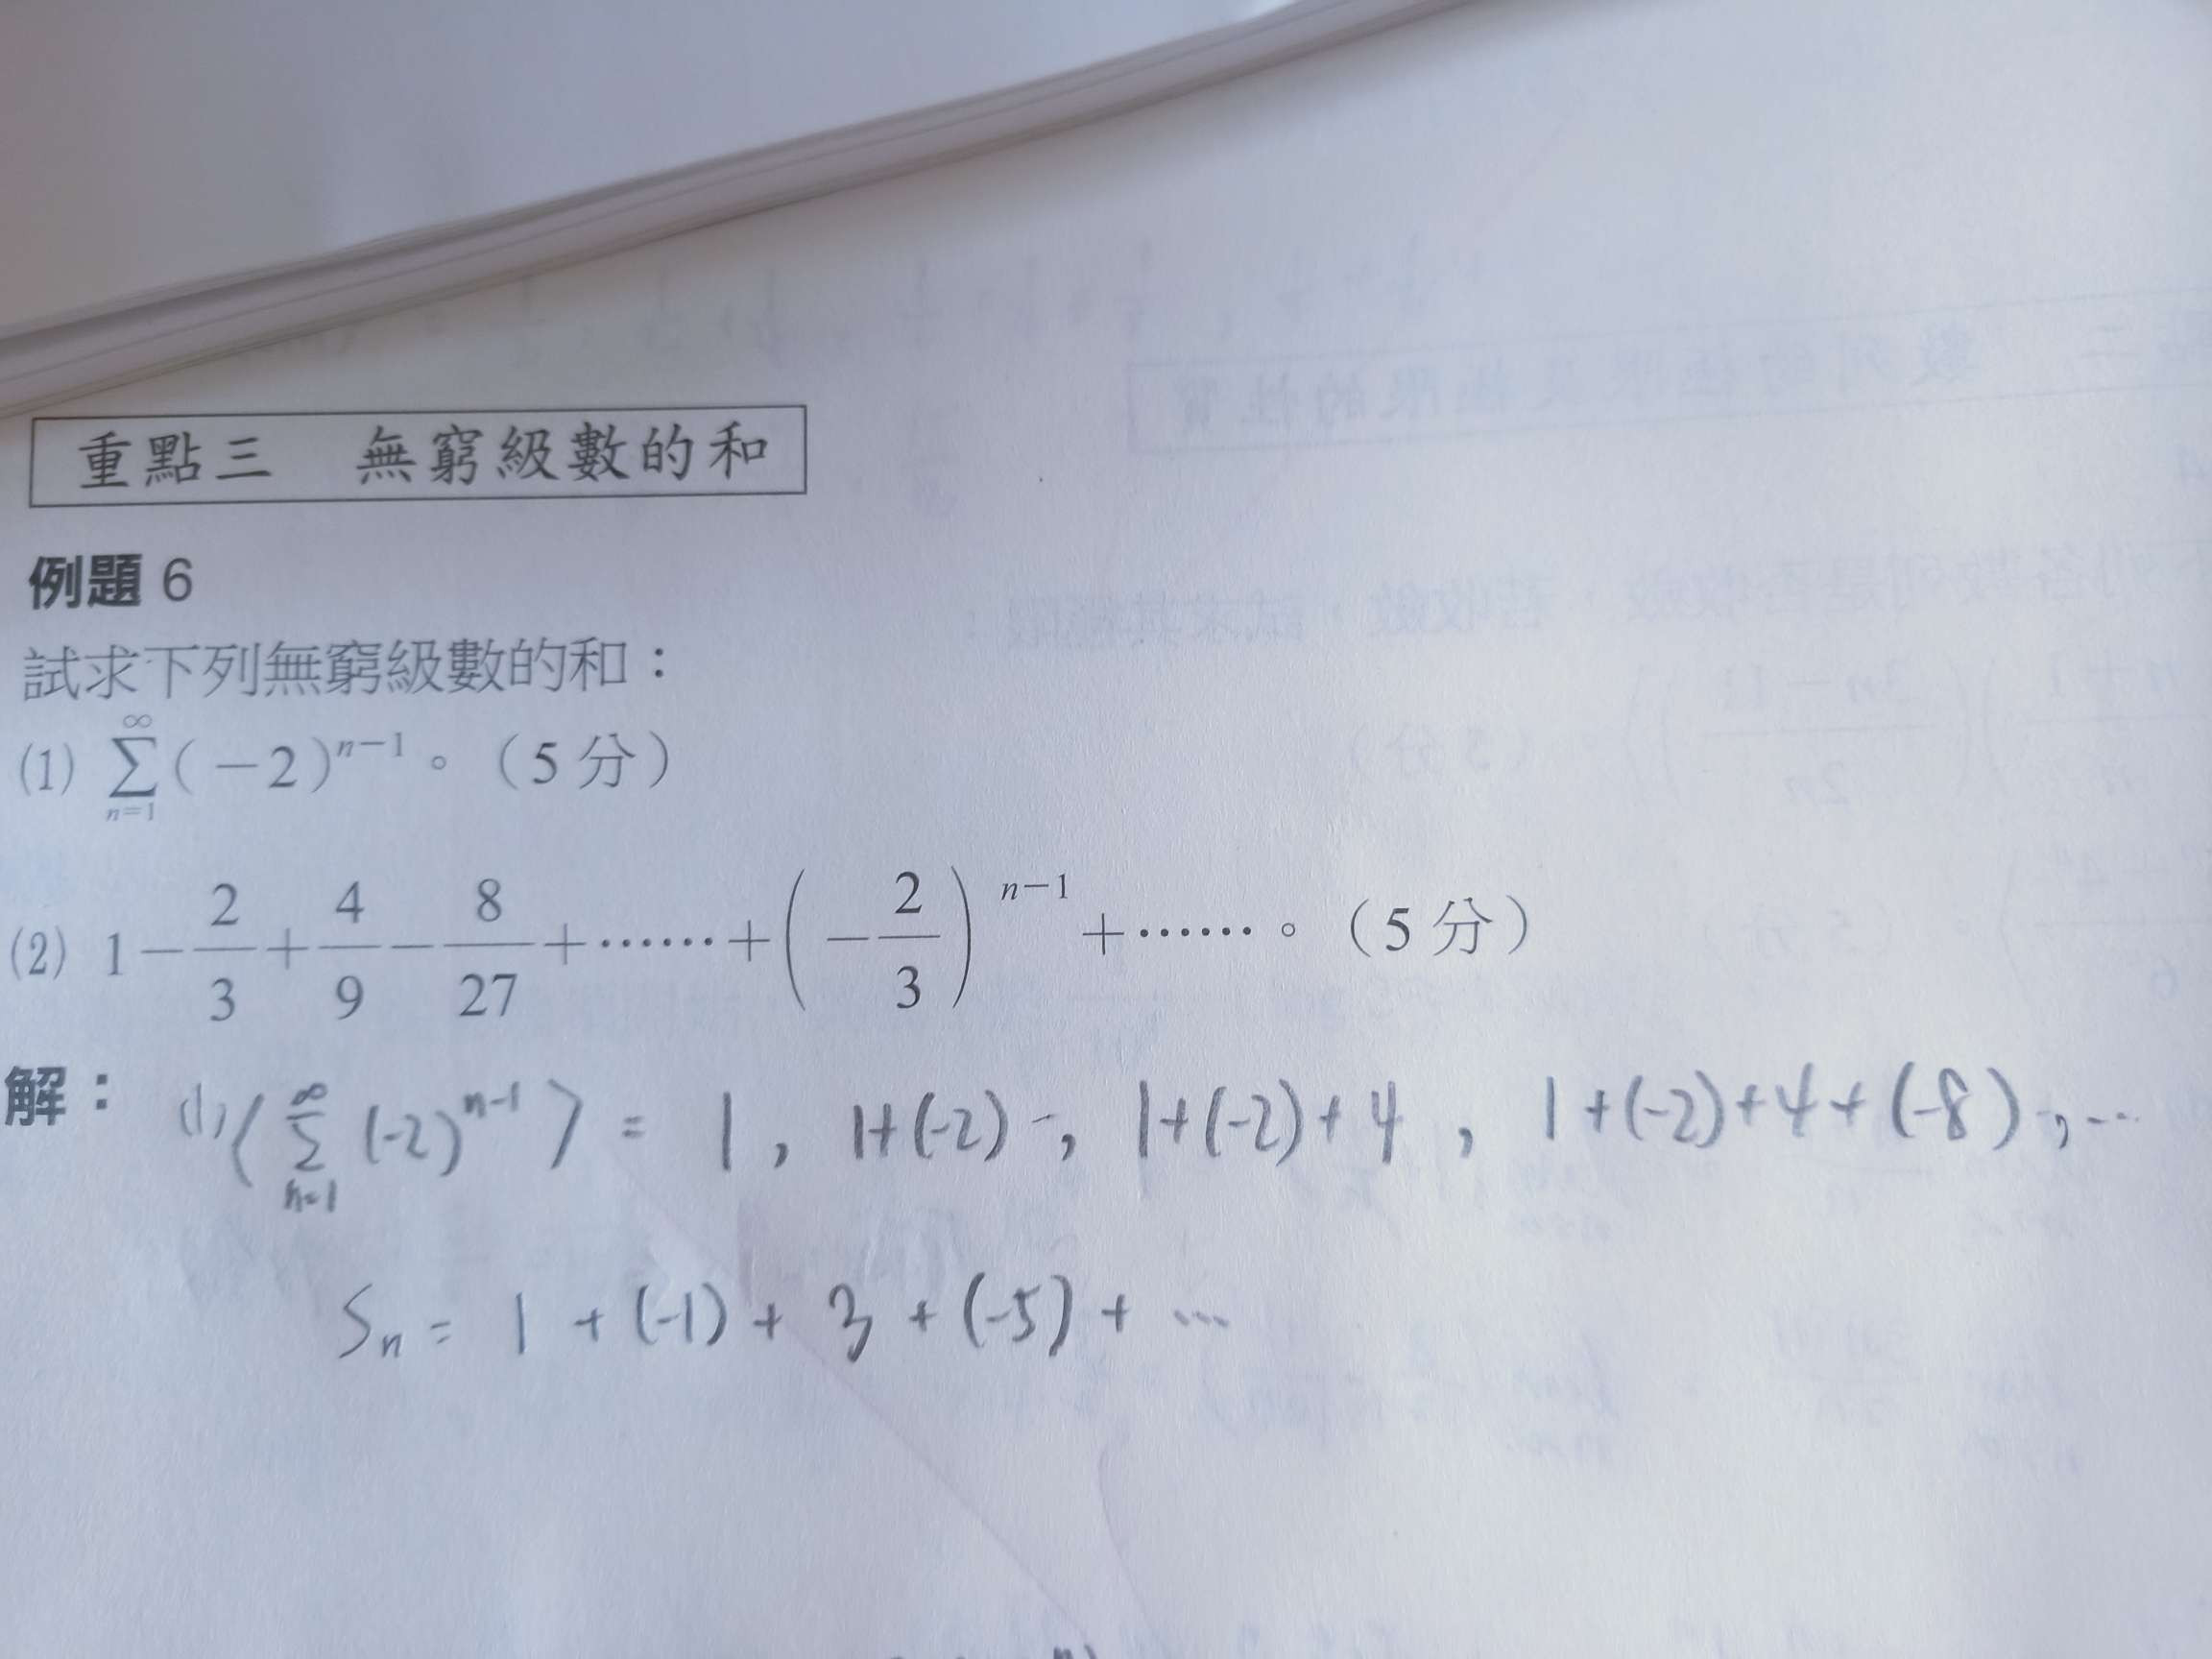 重點三　無窮級數的和
例題 6
試求下列無窮級數的和：
(1) \sum_{n=1}^{\infty}(-2)^{n-1}。(5 分)
(2) 1-\frac{2}{3}+\frac{4}{9}-\frac{8}{27}+……+\left(-\frac{2}{3}\right)^{n-1}+……。(5 分)
解： (1) ⟨\sum_{n=1}^{\infty}(-2)^{n-1}⟩ = 1 , 1+(-2) , 1+(-2)+4 , 1+(-2)+4+(-8) , …
S_n = 1 + (-1) + 3 + (-5) + …